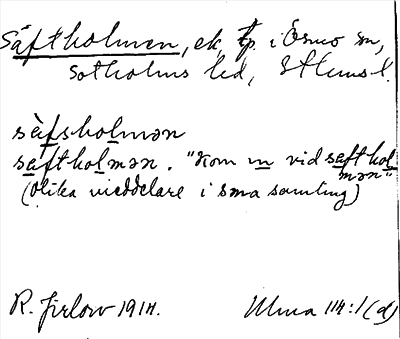 Säftholmen, ek, tp. i Ösmo sn,
Sotholms hd, Sthms l.
sàfsholmən
saftholmən. "kom in vid safthol
mən"
(olika meddelare i sma samling)
R. Jirlow 1914.
Ulma 114:1 (d)